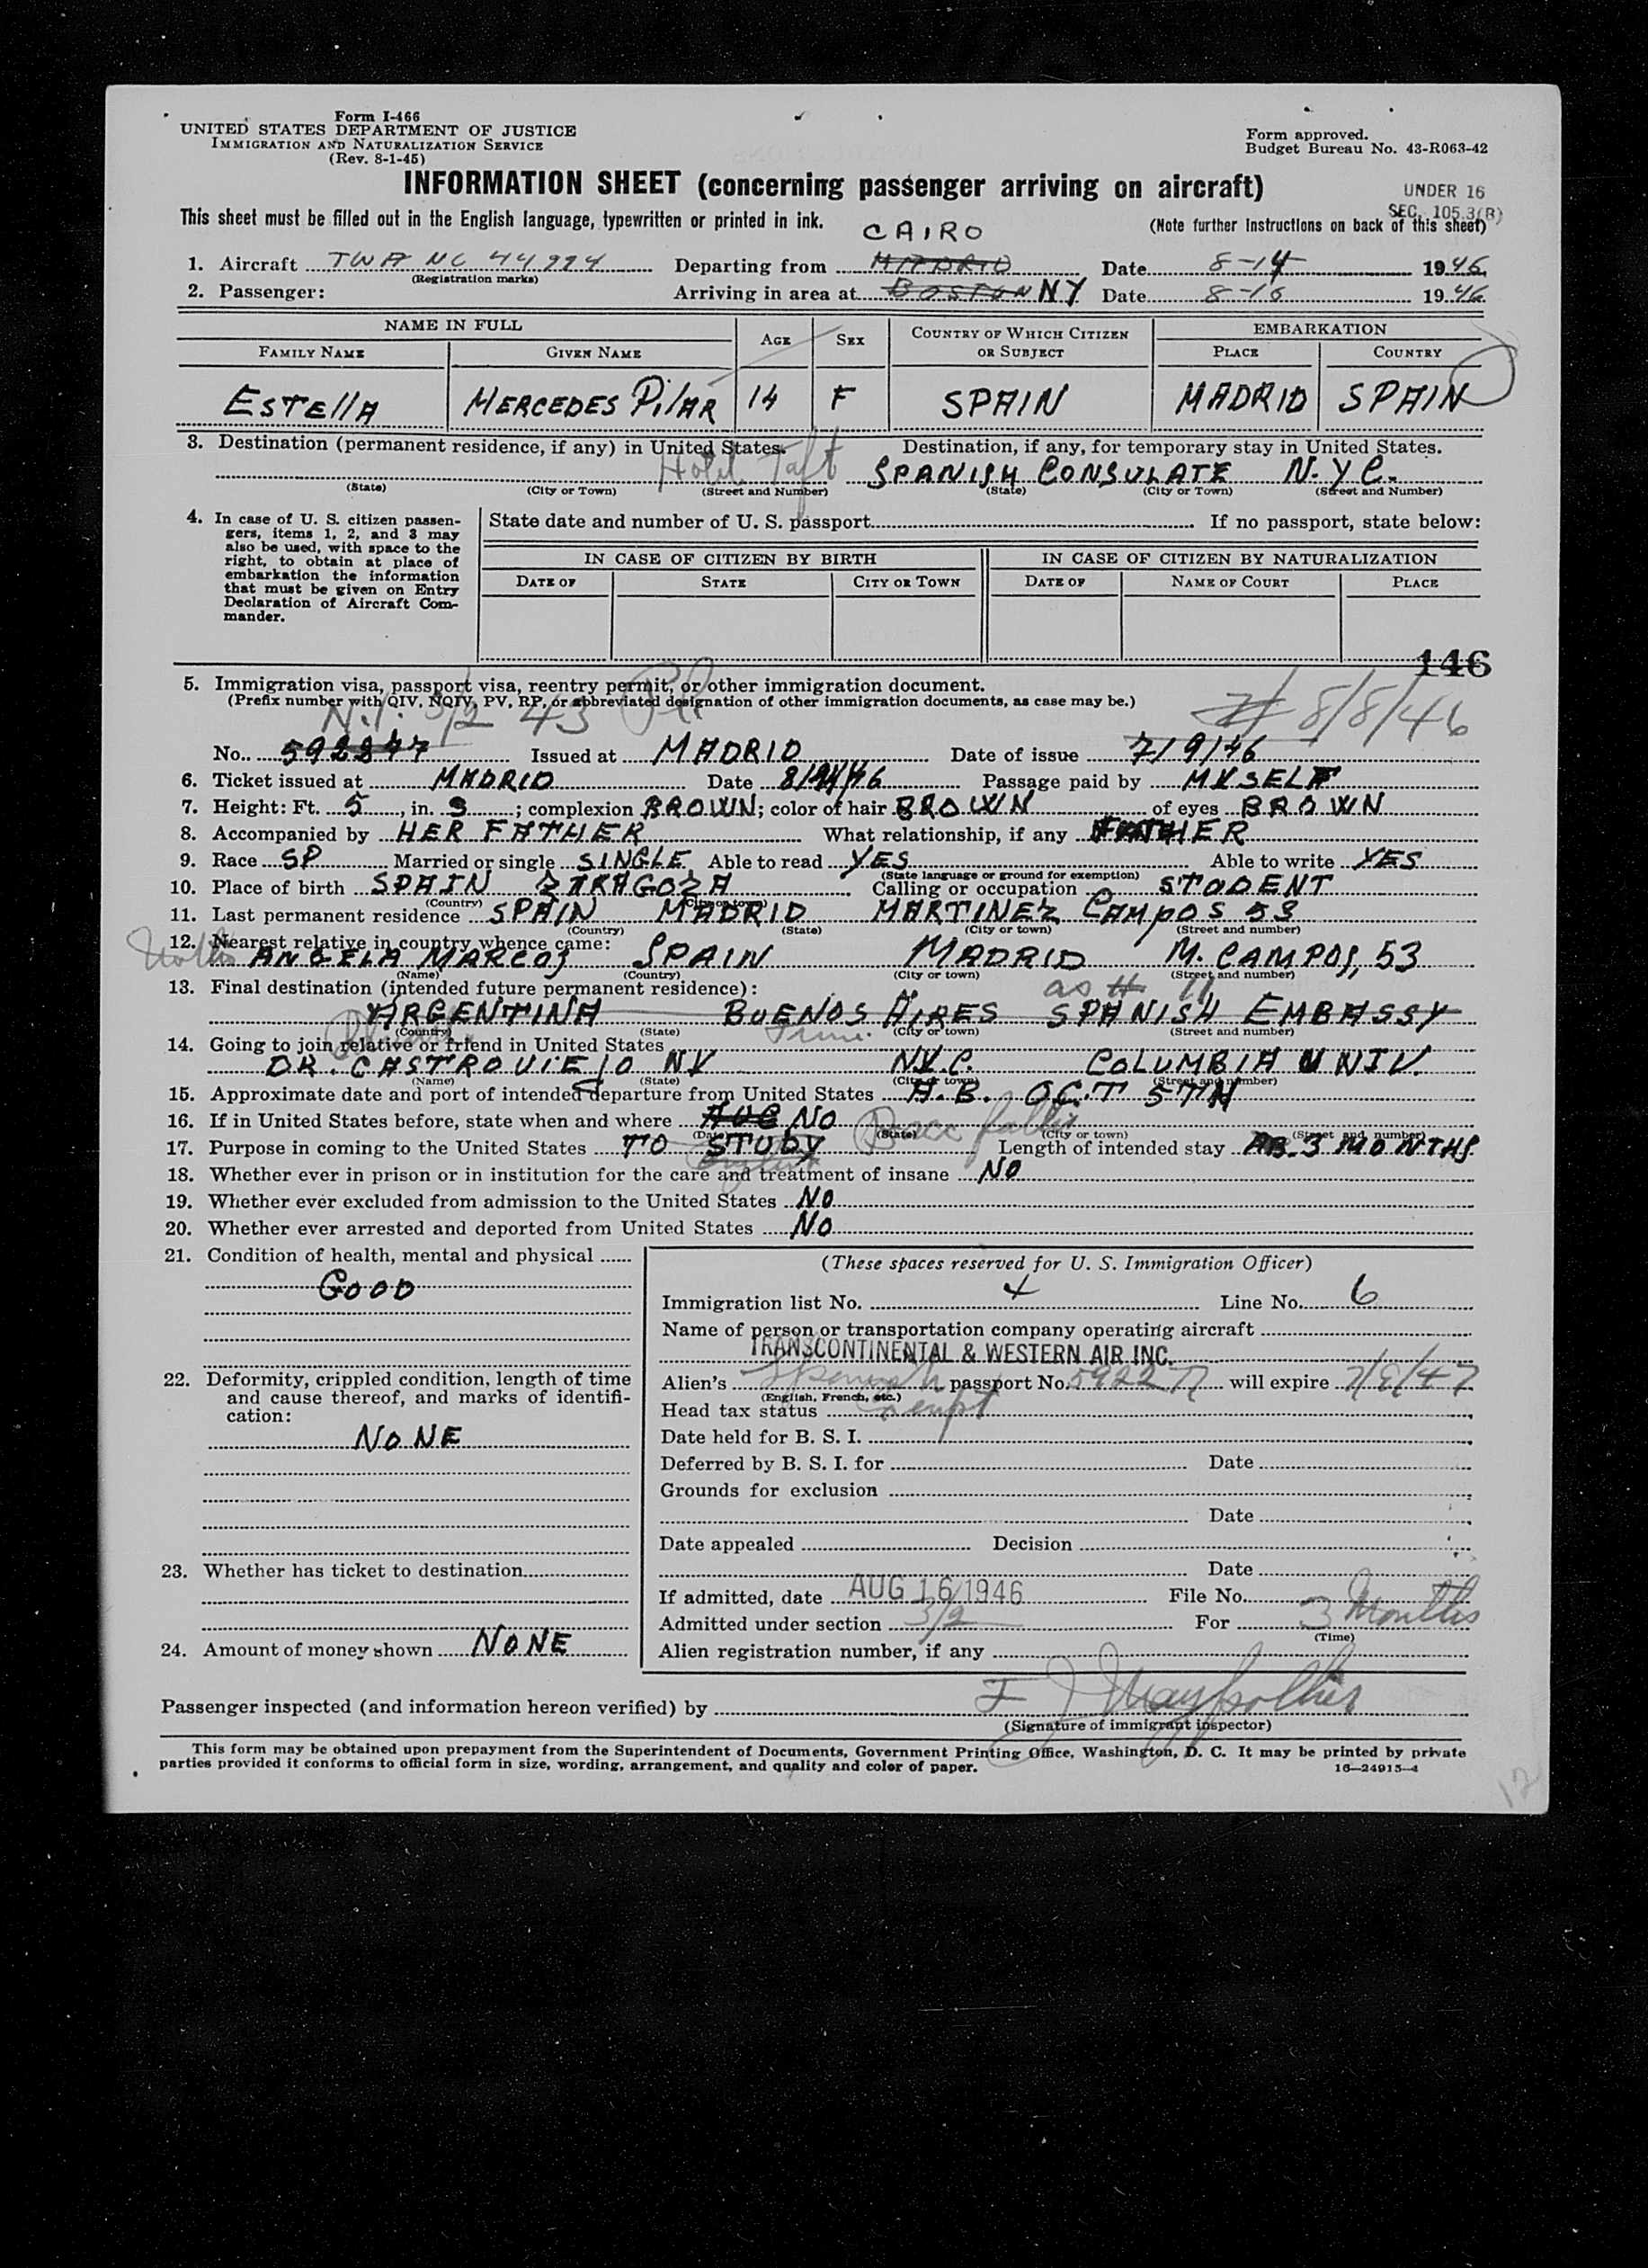 Form I-466
UNITED STATES DEPARTMENT OF JUSTICE
IMMIGRATION AND NATURALIZATION SERVICE
(Rev. 8-1-45)
Form approved.
Budget Bureau No. 43-R063-42
INFORMATION SHEET (concerning passenger arriving on aircraft)
UNDER 16
SEC. 105.3(B)
This sheet must be filled out in the English language, typewritten or printed in ink.
(Note further instructions on back of this sheet)
CAIRO
1. Aircraft TWA NC 44994 Departing from MADRID Date 8-14 1946
(Registration marks)
2. Passenger: Arriving in area at BOSTON NY Date 8-16 1946
NAME IN FULL AGE SEX COUNTRY OF WHICH CITIZEN OR SUBJECT EMBARKATION
FAMILY NAME GIVEN NAME PLACE COUNTRY
ESTEllA MERCEDES PilAR 14 F SPAIN MADRID SPAIN
3. Destination (permanent residence, if any) in United States. Destination, if any, for temporary stay in United States.
Hotel Taft SPANISH CONSULATE N.Y C.
(State) (City or Town) (Street and Number) (State) (City or Town) (Street and Number)
4. In case of U. S. citizen passengers, items 1, 2, and 3 may also be used, with space to the right, to obtain at place of embarkation the information that must be given on Entry Declaration of Aircraft Commander.
State date and number of U. S. passport If no passport, state below:
IN CASE OF CITIZEN BY BIRTH IN CASE OF CITIZEN BY NATURALIZATION
DATE OF STATE CITY OR TOWN DATE OF NAME OF COURT PLACE
146
5. Immigration visa, passport visa, reentry permit, or other immigration document.
(Prefix number with QIV, NQIV, PV, RP, or abbreviated designation of other immigration documents, as case may be.)
3/2 43 8/8/46
No. Issued at MADRID Date of issue 7/9/46
6. Ticket issued at MADRID Date Passage paid by MYSELF
7. Height: Ft. 5, in. 3; complexion BROWN; color of hair BROWN of eyes BROWN
8. Accompanied by HER FATHER What relationship, if any FATHER
9. Race SP Married or single SINGLE Able to read YES Able to write YES
(State language or ground for exemption)
10. Place of birth SPAIN ZARAGOZA Calling or occupation STUDENT
(Country) (City or town)
11. Last permanent residence SPAIN MADRID MARTINEZ CAMPOS 53
(Country) (State) (City or town) (Street and number)
12. Nearest relative in country whence came:
ANGELA MARCOS SPAIN MADRID M. CAMPOS, 53
(Name) (Country) (City or town) (Street and number)
13. Final destination (intended future permanent residence): as # 11
ARGENTINA BUENOS AIRES SPANISH EMBASSY
(Country) (State) (City or town) (Street and number)
14. Going to join relative or friend in United States
DR. CASTROVIEJO NY N.Y.C. COLUMBIA UNIV.
(Name) (State) (City or town) (Street and number)
15. Approximate date and port of intended departure from United States A.B. OCT 5TH
16. If in United States before, state when and where NO
(Date) (State) (City or town) (Street and number)
17. Purpose in coming to the United States TO STUDY Length of intended stay AB. 3 MONTHS
18. Whether ever in prison or in institution for the care and treatment of insane NO
19. Whether ever excluded from admission to the United States NO
20. Whether ever arrested and deported from United States NO
21. Condition of health, mental and physical
GOOD
22. Deformity, crippled condition, length of time and cause thereof, and marks of identification:
NONE
23. Whether has ticket to destination
24. Amount of money shown NONE
(These spaces reserved for U. S. Immigration Officer)
Immigration list No. 4 Line No. 6
Name of person or transportation company operating aircraft
TRANSCONTINENTAL & WESTERN AIR INC.
Alien's Spanish passport No. 592277 will expire 7/9/47
(English, French, etc.)
Head tax status Exempt
Date held for B. S. I.
Deferred by B. S. I. for Date
Grounds for exclusion
Date
Date appealed Decision
Date
If admitted, date AUG 16 1946 File No.
Admitted under section 3/2 For 3 Months
(Time)
Alien registration number, if any
Passenger inspected (and information hereon verified) by
(Signature of immigrant inspector)
This form may be obtained upon prepayment from the Superintendent of Documents, Government Printing Office, Washington, D. C. It may be printed by private
parties provided it conforms to official form in size, wording, arrangement, and quality and color of paper.
16—24913-4
12